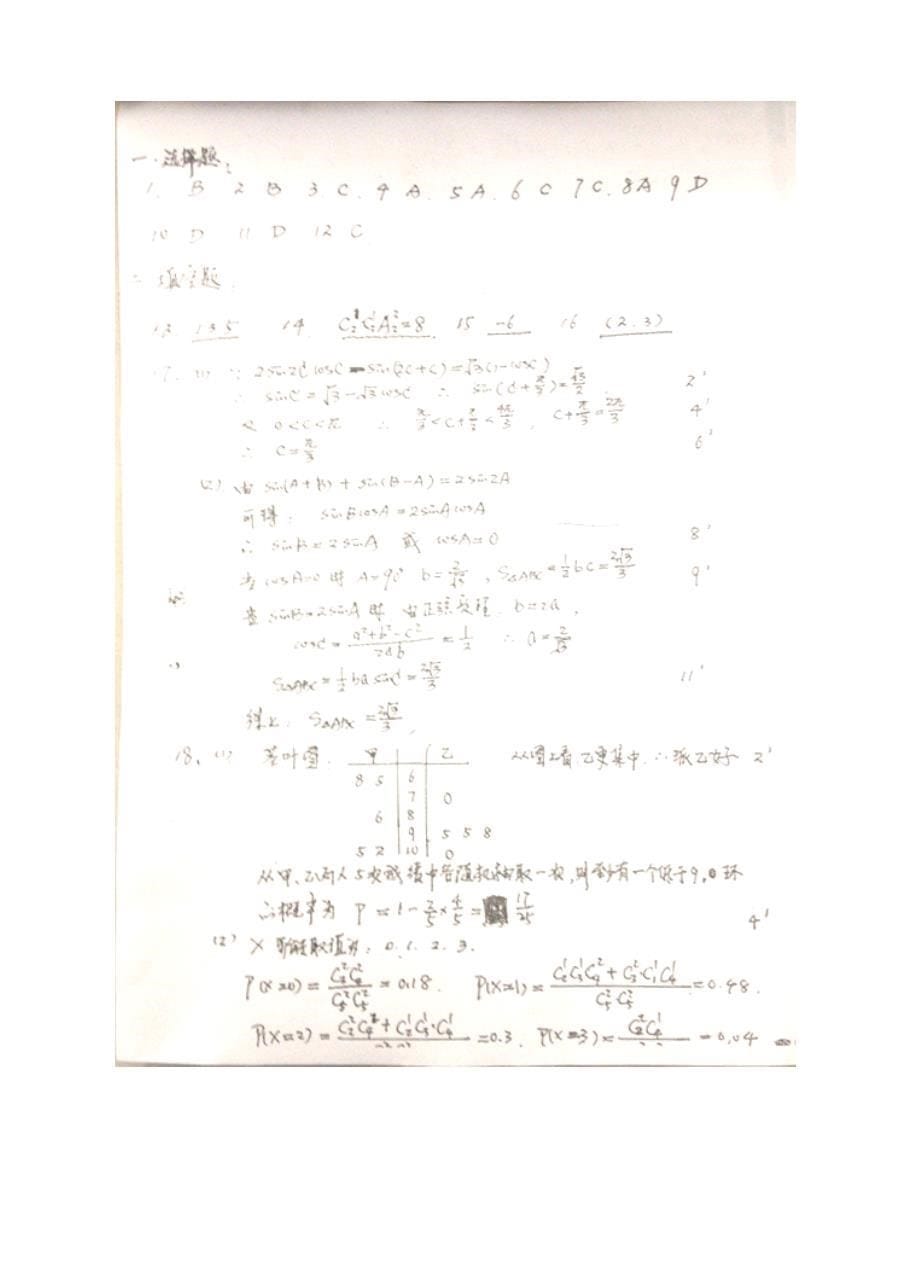 一.选择题:
1. B 2 B 3. C. 4 A. 5 A. 6 C 7 C. 8 A 9 D
10 D 11 D 12 C
二 填空题:
13. 135 14. C₂¹C₂¹A₂²=8 15 -6 16 (2.3)
17. (1) ∵ 2sin2C cosC - sin(2C+C)=√3(1-cosC)
∴ sinC=√3-√3cosC ∴ sin(C+π/3)=√3/2 2'
又 0<C<π ∴ π/3<C+π/3<4π/3, C+π/3=2π/3 4'
∴ C=π/3 6'
(2) 由 sin(A+B)+sin(B-A)=2sin2A
可得: sinBcosA=2sinAcosA
∴ sinB=2sinA 或 cosA=0 8'
当 cosA=0 时 A=90° b=2/√3, S△ABC=1/2 bc=2√3/3 9'
当 sinB=2sinA 时 由正弦定理. b=2a,
cosC=(a²+b²-c²)/2ab=1/2 ∴ a=2/√3
S△ABC=1/2 ba sinC=2√3/3 11'
综上: S△ABC=2√3/3,
18. (1) 茎叶图: 甲 乙 从图上看 乙更集中. ∴ 派乙好 2'
8 5 | 6 |
| 7 | 0
6 | 8 |
| 9 | 5 5 8
5 2 | 10 | 0
从甲、乙两人5次成绩中各随机抽取一次,则至少有一个低于9.0环
的概率为 P=1-2/5×4/5=17/25 4'
(2) X 可能取值为: 0. 1. 2. 3.
P(X=0)=C₃²C₄²/C₅²C₅²=0.18. P(X=1)= =0.48.
P(X=2)= =0.3. P(X=3)=C₂²C₄¹ =0.04